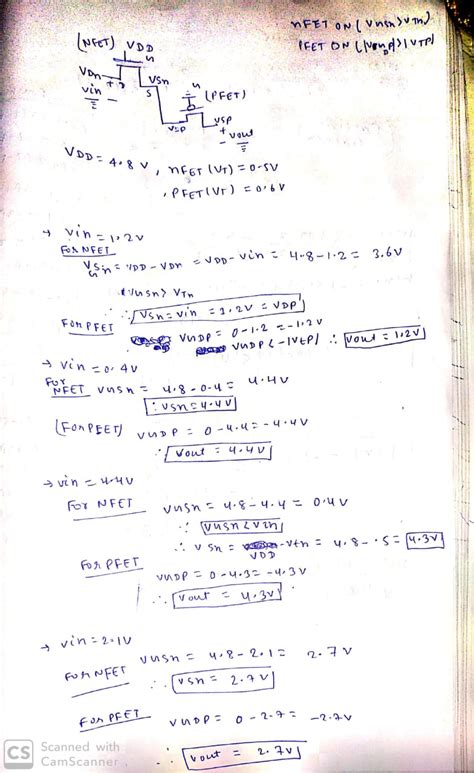 nFET ON (VGSn > VTn)
PFET ON (|VGSp| > |VTP|)
(NFET) VDD
VDn
VSn
Vin
+
S
S
(PFET)
VSP
+
Vout
-
VDD = 4.8 V, nFET (VT) = 0.5V
, PFET (VT) = 0.6 V
→ Vin = 1.2V
FOR NFET
= VDD - VDn = VDD - Vin = 4.8 - 1.2 = 3.6V
> VTn
∴ VSn = Vin = 1.2V = VDP
FOR PFET
VGDP = 0 - 1.2 = -1.2 V
VGDP < -|VTP| ∴ Vout = 1.2V
→ Vin = 0.4V
FOR
NFET VGSn = 4.8 - 0.4 = 4.4V
∴ VSn = 4.4V
(FOR PFET) VGDP = 0 - 4.4 = -4.4V
∴ Vout = 4.4V
→ Vin = 4.4V
FOR NFET VGSn = 4.8 - 4.4 = 0.4V
∴ VGSn < VTn
∴ VSn = VDD - Vtn = 4.8 - .5 = 4.3V
FOR PFET
VGDP = 0 - 4.3 = -4.3V
∴ Vout = 4.3V
→ Vin = 2.1V
FOR NFET VGSn = 4.8 - 2.1 = 2.7V
∴ VSn = 2.7V
FOR PFET VGDP = 0 - 2.7 = -2.7V
∴ Vout = 2.7V
CS Scanned with
CamScanner